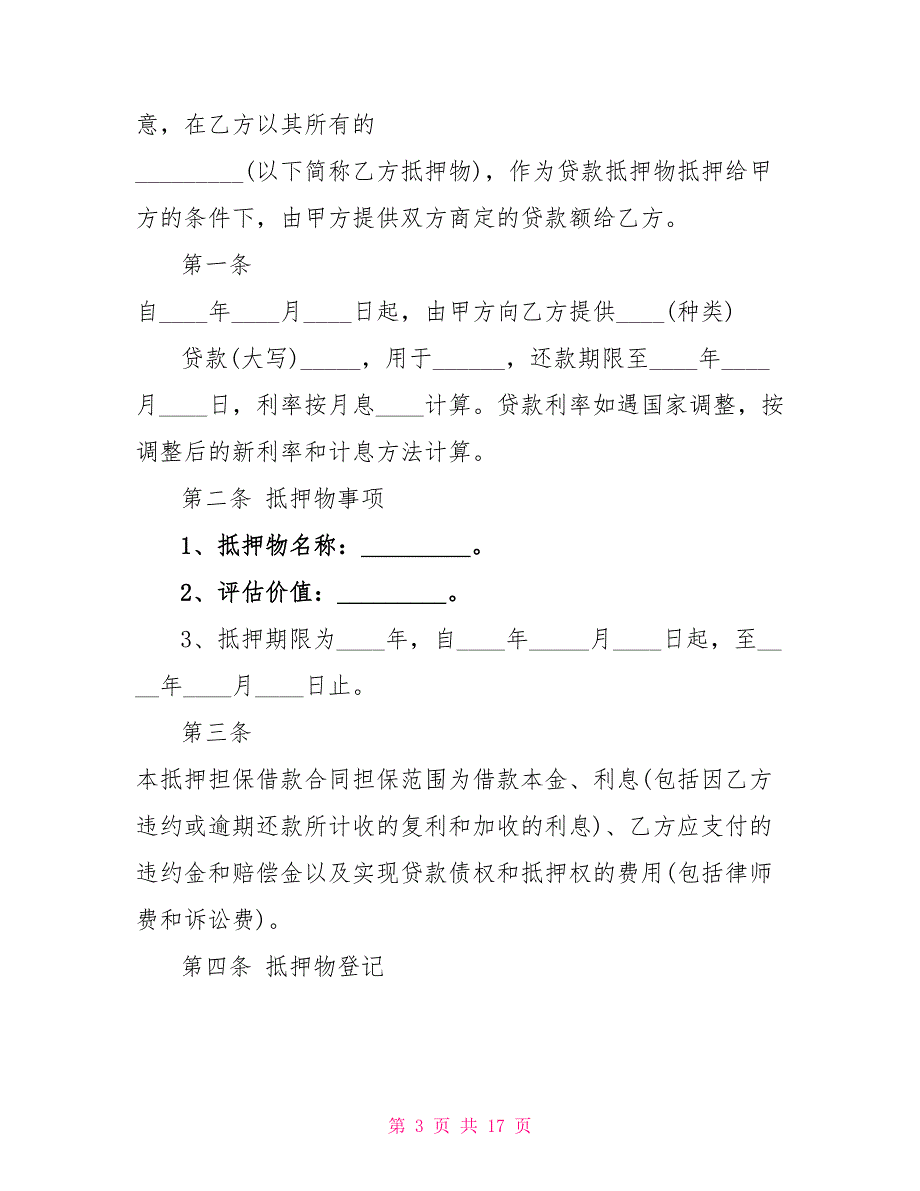 意，在乙方以其所有的
_________(以下简称乙方抵押物)，作为贷款抵押物抵押给甲
方的条件下，由甲方提供双方商定的贷款额给乙方。
第一条
自____年____月____日起，由甲方向乙方提供____(种类)
贷款(大写)_____，用于______，还款期限至____年____
月____日，利率按月息____计算。贷款利率如遇国家调整，按
调整后的新利率和计息方法计算。
第二条 抵押物事项
1、抵押物名称：_________。
2、评估价值：_________。
3、抵押期限为____年，自____年_____月____日起，至__
__年____月____日止。
第三条
本抵押担保借款合同担保范围为借款本金、利息(包括因乙方
违约或逾期还款所计收的复利和加收的利息)、乙方应支付的
违约金和赔偿金以及实现贷款债权和抵押权的费用(包括律师
费和诉讼费)。
第四条 抵押物登记
第 3 页 共 17 页